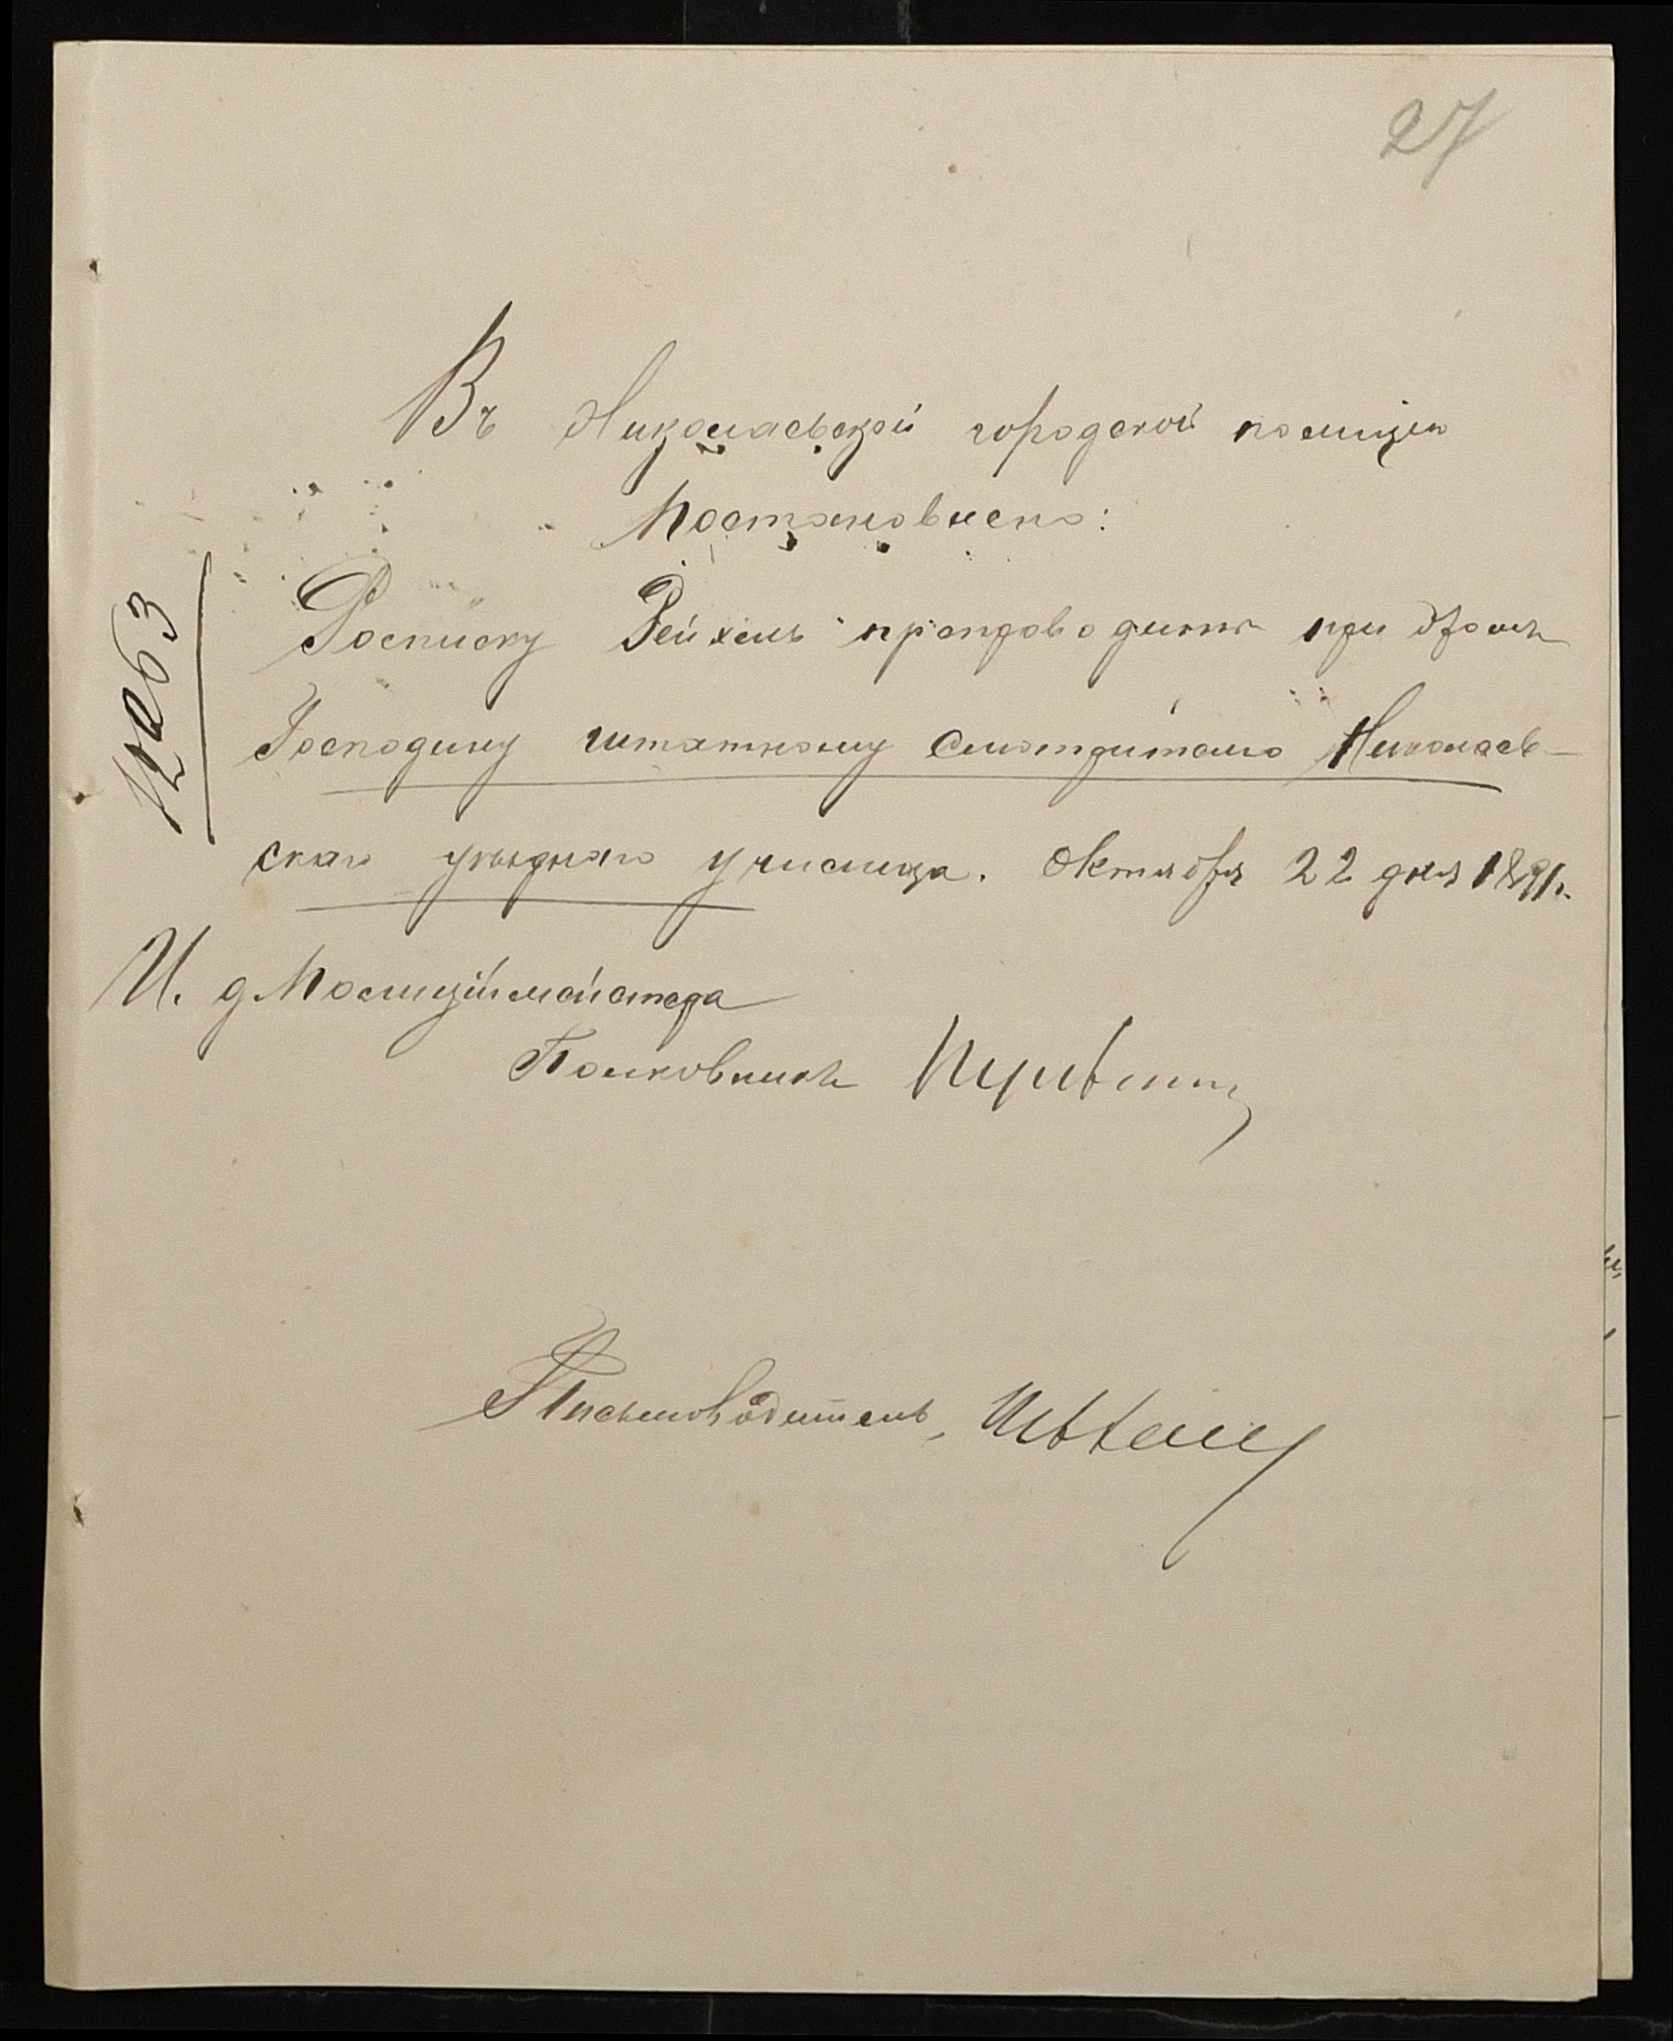 27
Въ Николаевской городской полиціи
Постановлено:
Росписку Рейхель препроводить при этомъ
Господину штатному Смотрителю Николаев-
скаго уѣзднаго училища. Октября 22 дня 1891 г.
12263
И. д. Полиціймейстера
Полковникъ
Письмоводитель,